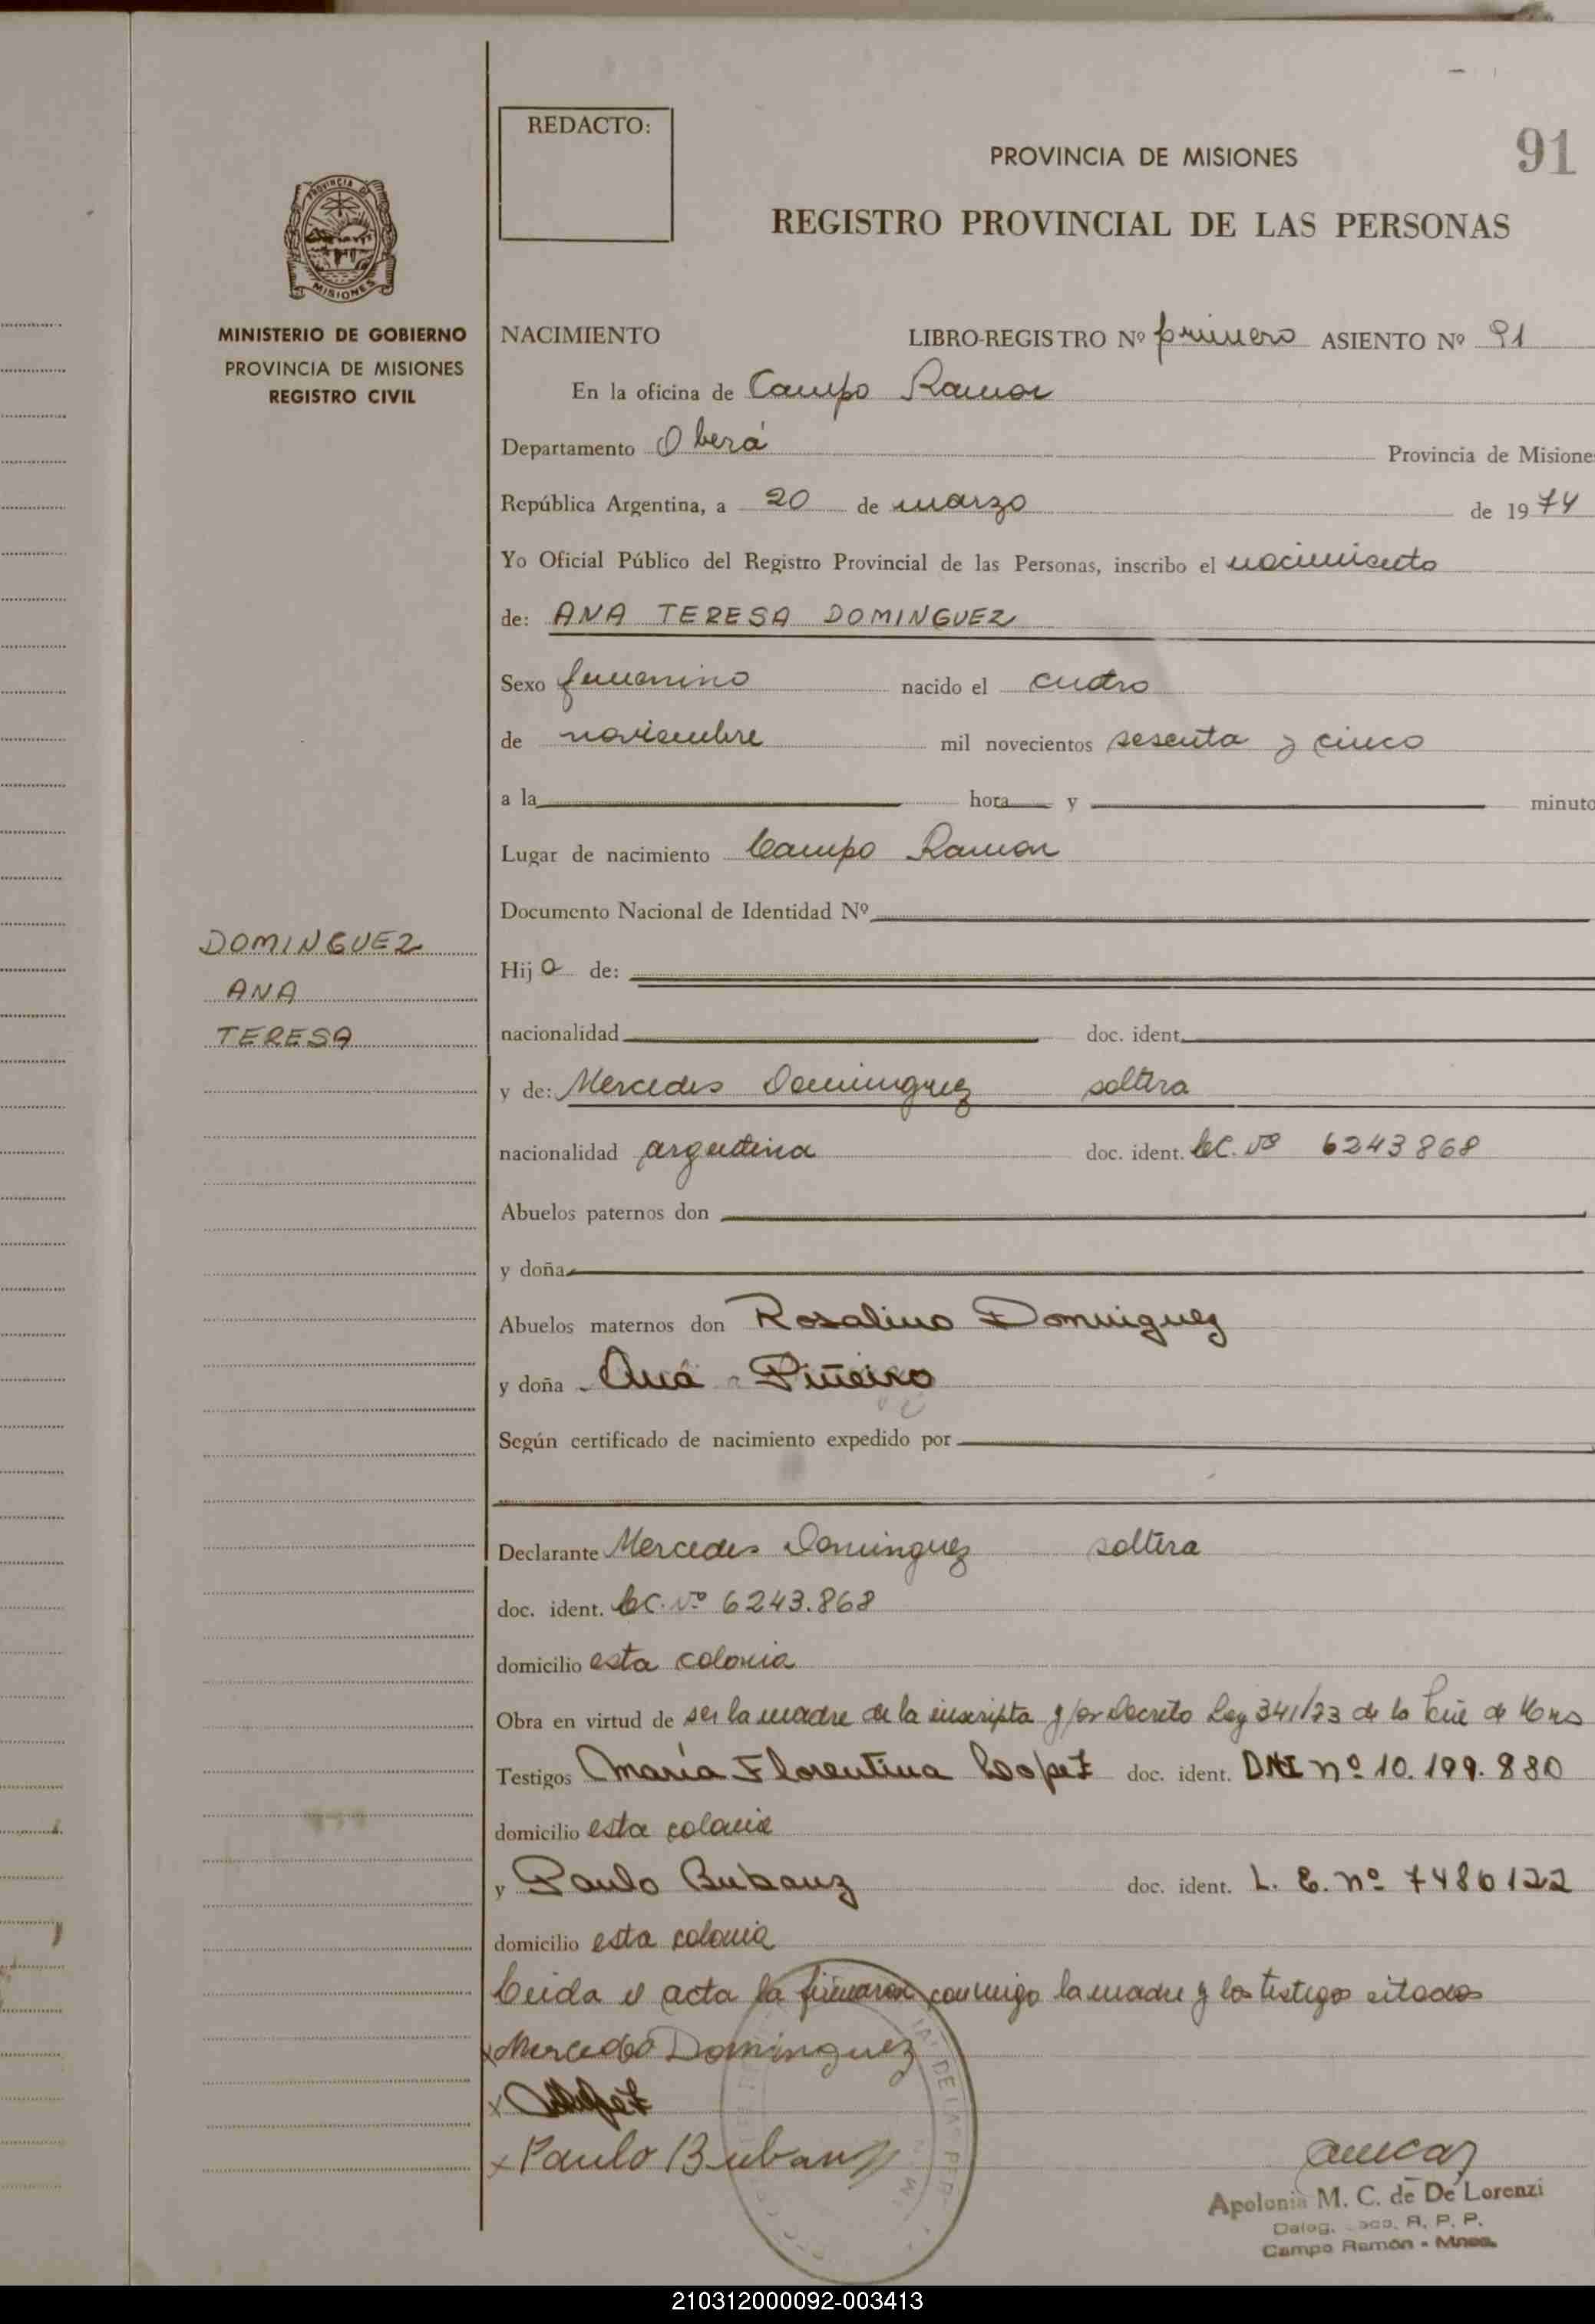 REDACTO:
PROVINCIA DE MISIONES
91
REGISTRO PROVINCIAL DE LAS PERSONAS
PROVINCIA DE
MISIONES
MINISTERIO DE GOBIERNO
PROVINCIA DE MISIONES
REGISTRO CIVIL
NACIMIENTO LIBRO-REGISTRO Nº primero ASIENTO Nº 91
En la oficina de Campo Ramon
Departamento Oberá Provincia de Misione
República Argentina, a 20 de marzo de 1974
Yo Oficial Público del Registro Provincial de las Personas, inscribo el nacimiento
de: ANA TERESA DOMINGUEZ
Sexo femenino nacido el cuatro
de noviembre mil novecientos sesenta y cinco
a la hora y minuto
Lugar de nacimiento Campo Ramon
Documento Nacional de Identidad Nº
DOMINGUEZ
ANA
TERESA
Hija de:
nacionalidad doc. ident.
y de: Mercedes Dominguez soltera
nacionalidad argentina doc. ident. LC. Nº 6243868
Abuelos paternos don
y doña
Abuelos maternos don Rosalino Dominguez
y doña Ana Piñeiro
Según certificado de nacimiento expedido por
Declarante Mercedes Dominguez soltera
doc. ident. LC. Nº 6243.868
domicilio esta colonia
Obra en virtud de ser la madre de la inscripta y por Decreto Ley 341/73 de la de
Testigos Maria Florentina Lopez doc. ident. DNI nº 10.199.880
domicilio esta colonia
y Paulo Bubanz doc. ident. L. E. nº 7486122
domicilio esta colonia
Leida el acta la firmaron conmigo la madre y los testigos citados
x Mercedes Dominguez
x
x Paulo Bubanz
Apolonia M. C. de De Lorenzi
Deleg. R. P. P.
Campo Ramón - Mnes.
210312000092-003413